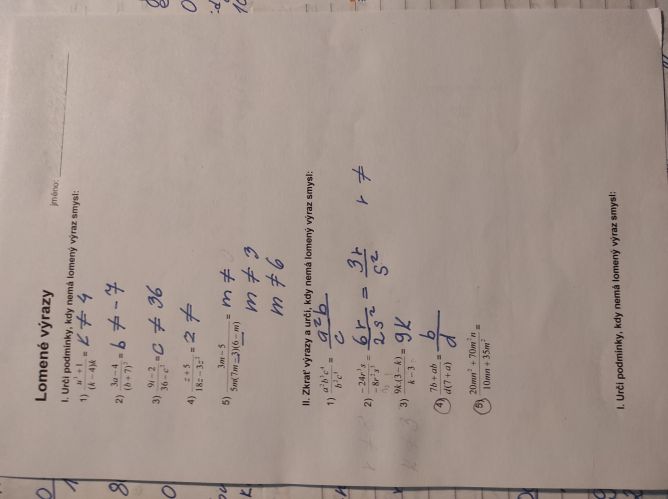 Lomené výrazy
jméno:
I. Urči podmínky, kdy nemá lomený výraz smysl:
1) (k − 4)k = k ≠ 4
2) 3a − 4 / (b + 7)² = b ≠ −7
3) 9t − 2 / 36 − c² = c ≠ 36
4) z + 5 / 18z − 3z² = z ≠
5) 3m − 5 / 5m(7m − 3)(6 − m) = m ≠ 0
m ≠ 3
m ≠ 6
II. Zkrať výrazy a urči, kdy nemá lomený výraz smysl:
1) = a²b / c
2) = 6r / 2s² = 3r / s² r ≠
3) 9k(3 − k) / k − 3 = 9k
4) 7b + ab / d(7 + a) = b / d
5) 20mn² + 70m²n / 10mn + 35m² =
I. Urči podmínky, kdy nemá lomený výraz smysl: